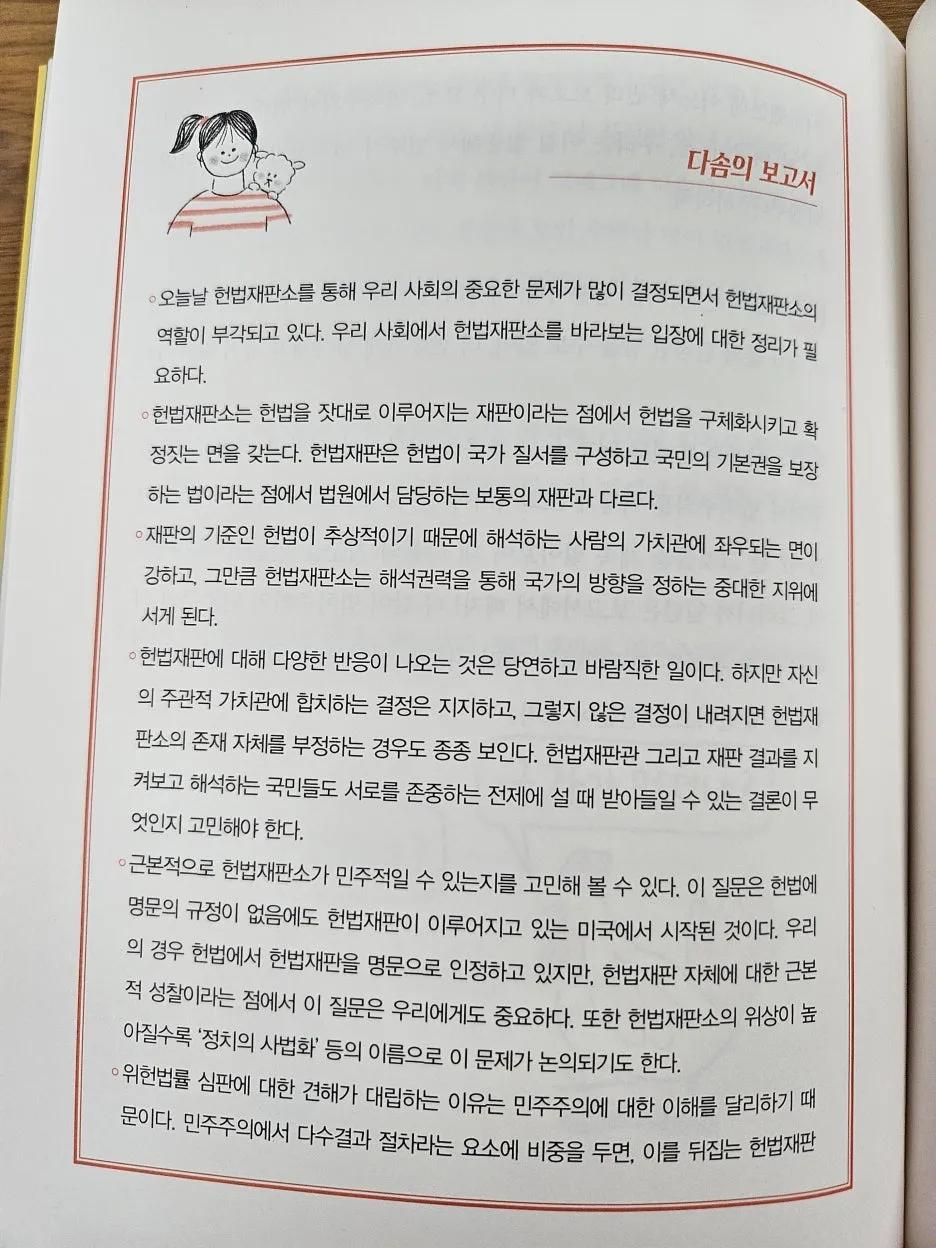 다솜의 보고서
◦오늘날 헌법재판소를 통해 우리 사회의 중요한 문제가 많이 결정되면서 헌법재판소의
역할이 부각되고 있다. 우리 사회에서 헌법재판소를 바라보는 입장에 대한 정리가 필
요하다.
◦헌법재판소는 헌법을 잣대로 이루어지는 재판이라는 점에서 헌법을 구체화시키고 확
정짓는 면을 갖는다. 헌법재판은 헌법이 국가 질서를 구성하고 국민의 기본권을 보장
하는 법이라는 점에서 법원에서 담당하는 보통의 재판과 다르다.
◦재판의 기준인 헌법이 추상적이기 때문에 해석하는 사람의 가치관에 좌우되는 면이
강하고, 그만큼 헌법재판소는 해석권력을 통해 국가의 방향을 정하는 중대한 지위에
서게 된다.
◦헌법재판에 대해 다양한 반응이 나오는 것은 당연하고 바람직한 일이다. 하지만 자신
의 주관적 가치관에 합치하는 결정은 지지하고, 그렇지 않은 결정이 내려지면 헌법재
판소의 존재 자체를 부정하는 경우도 종종 보인다. 헌법재판관 그리고 재판 결과를 지
켜보고 해석하는 국민들도 서로를 존중하는 전제에 설 때 받아들일 수 있는 결론이 무
엇인지 고민해야 한다.
◦근본적으로 헌법재판소가 민주적일 수 있는지를 고민해 볼 수 있다. 이 질문은 헌법에
명문의 규정이 없음에도 헌법재판이 이루어지고 있는 미국에서 시작된 것이다. 우리
의 경우 헌법에서 헌법재판을 명문으로 인정하고 있지만, 헌법재판 자체에 대한 근본
적 성찰이라는 점에서 이 질문은 우리에게도 중요하다. 또한 헌법재판소의 위상이 높
아질수록 ‘정치의 사법화’ 등의 이름으로 이 문제가 논의되기도 한다.
◦위헌법률 심판에 대한 견해가 대립하는 이유는 민주주의에 대한 이해를 달리하기 때
문이다. 민주주의에서 다수결과 절차라는 요소에 비중을 두면, 이를 뒤집는 헌법재판